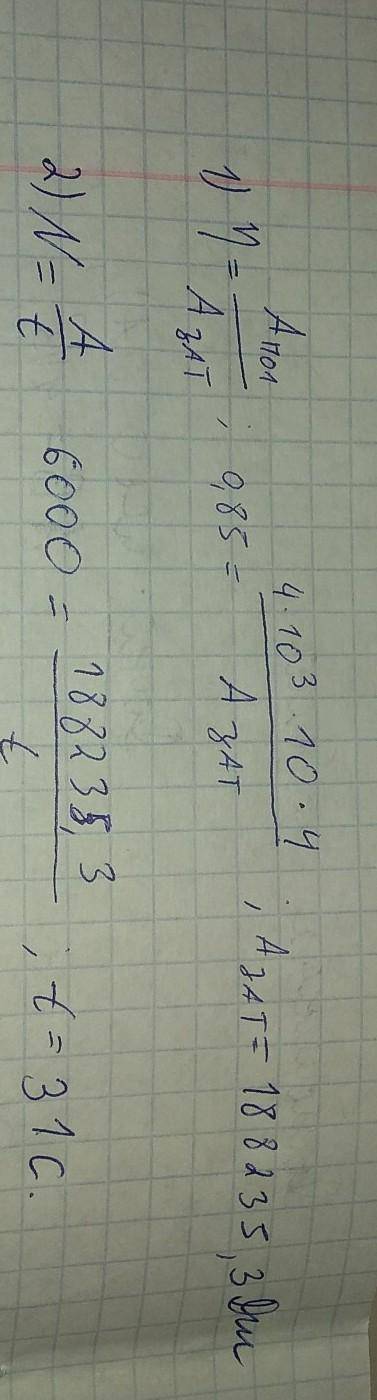 1) η = Aпол / Aзат ; 0,85 = 4·10³·10·4 / Aзат ; Aзат = 188235,3 Дж
2) N = A / t 6000 = 188235,3 / t ; t = 31 с.